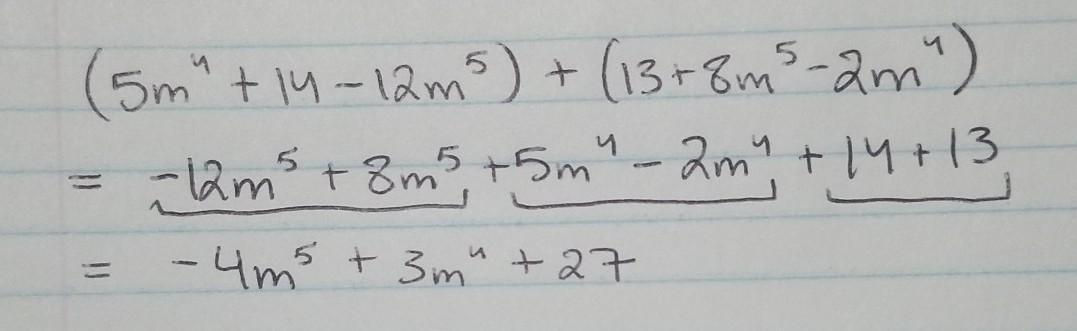 (5m⁴ + 14 - 12m⁵) + (13 + 8m⁵ - 2m⁴)
= -12m⁵ + 8m⁵ + 5m⁴ - 2m⁴ + 14 + 13
= -4m⁵ + 3m⁴ + 27